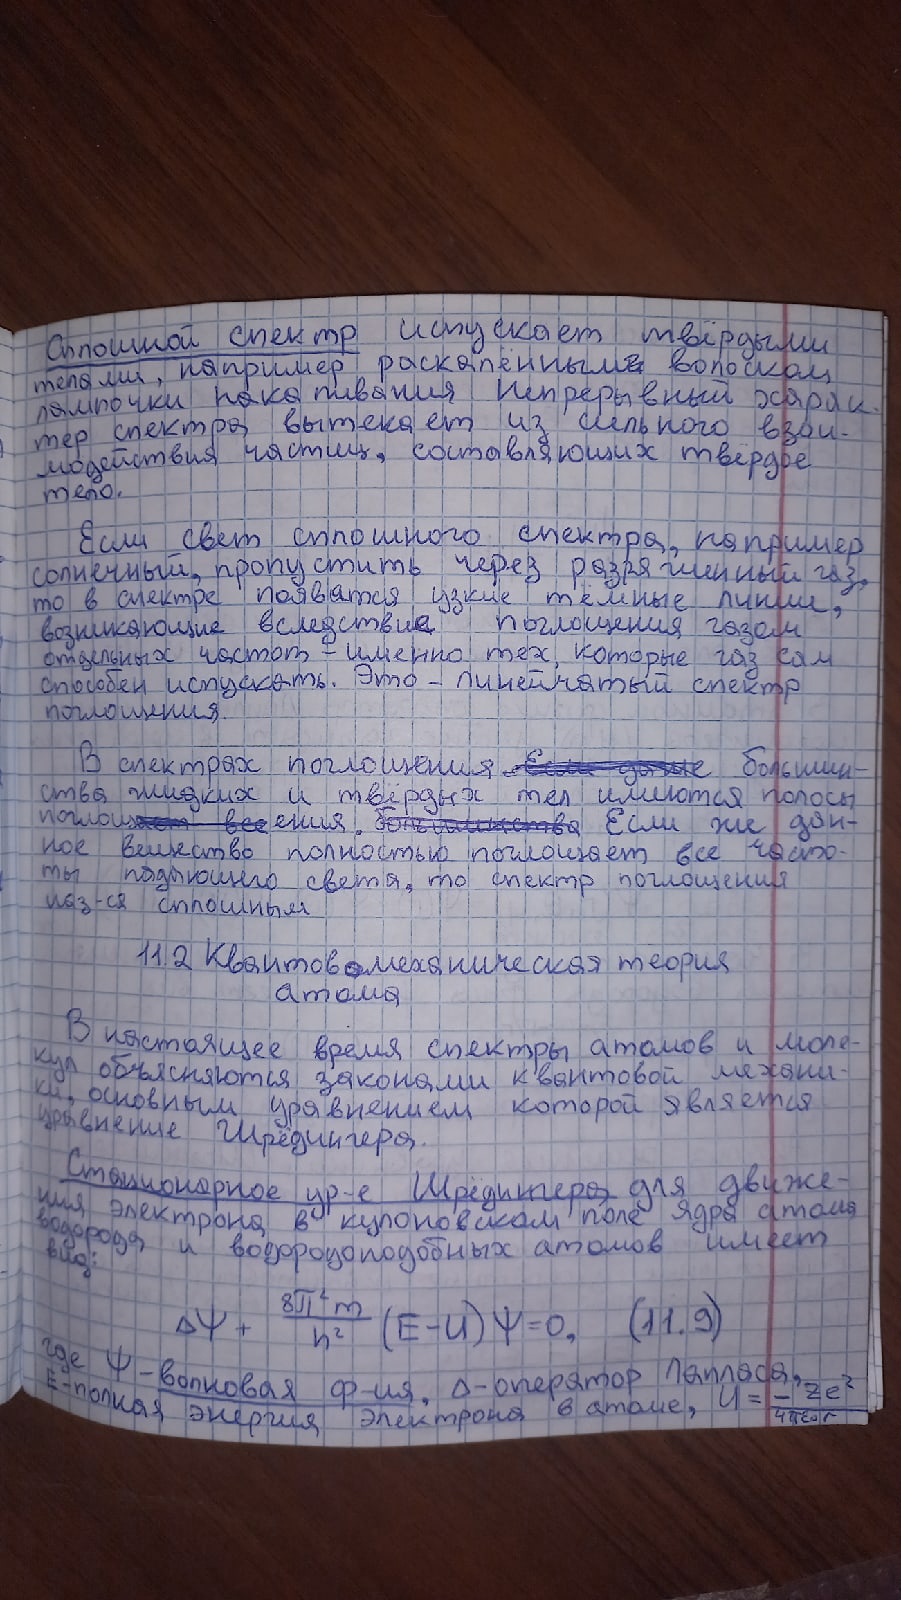 Сплошной спектр испускает твёрдыми
телами, например раскалённыма волоском
лампочки накаливания Непрерывный харак-
тер спектра вытекает из сильного взаи-
модействия частиц, составляющих твёрдое
тело.
Если свет сплошного спектра, например
солнечный, пропустить через разряженный газ,
то в спектре появятся узкие тёмные линии,
возникающие вследствие поглощения газом
отдельных частот - именно тех, которые газ сам
способен испускать. Это - линейчатый спектр
поглощения.
В спектрах поглощения большин-
ства жидких и твёрдых тел имеются полосы
поглощения. Если же дан-
ное вещество полностью поглощает все часто-
ты падающего света, то спектр поглощения
наз-ся сплошным
11.2 Квантовомеханическая теория
атома
В настоящее время спектры атомов и моле-
кул объясняются законами квантовой механи-
ки, основным уравнением которой является
уравнение Шрёдингера.
Стационарное ур-е Шрёдингера для движе-
ния электрона в кулоновском поле ядра атома
водорода и водородоподобных атомов имеет
вид:
ΔΨ + 8π²m/h² (E-U) Ψ = 0, (11.9)
где Ψ - волновая ф-ия, Δ - оператор Лапласа,
E - полная энергия электрона в атоме, U = - Ze²/4πε₀r